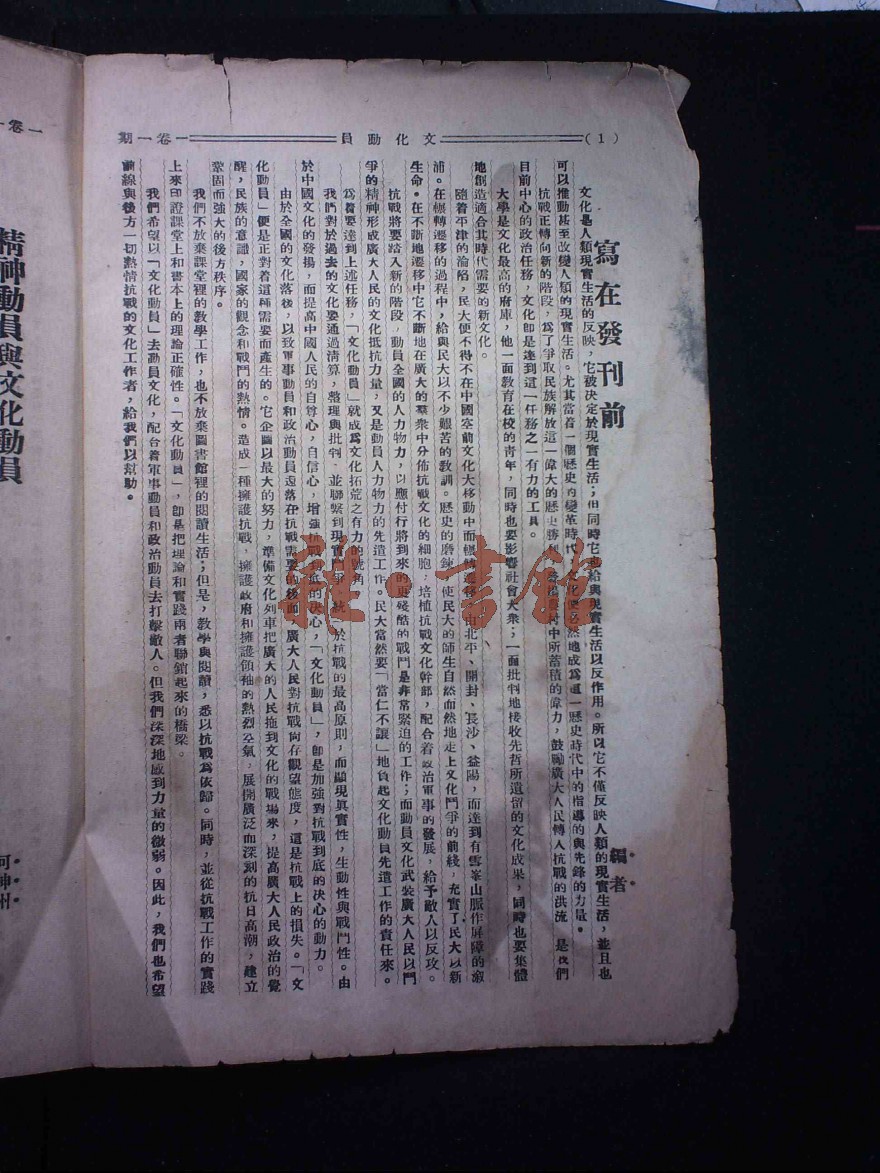 (1) 文化動員 一卷一期
寫在發刊前
編者
文化是人類現實生活的反映，它被決定於現實生活；但同時它也給與現實生活以反作用。所以它不僅反映人類的現實生活，並且也
可以推動甚至改變人類的現實生活。尤其當着一個歷史的變革時代，文化便必然地成爲這一歷史時代中的指導的與先鋒的力量。
抗戰正轉向新的階段，爲了爭取民族解放這一偉大的歷史勝利，發揚農村中所蓄積的偉力，鼓勵廣大人民轉入抗戰的洪流，是我們
目前中心的政治任務，文化卽是達到這一任務之一有力的工具。
大學是文化最高的府庫，他一面敎育在校的靑年，同時也要影響社會大衆；一面批判地接收先哲所遺留的文化成果，同時也要集體
地創造適合其時代需要的新文化。
隨着平津的淪陷，民大便不得不在中國空前文化大移動中而輾轉遷移，由北平、開封、長沙、益陽，而達到有雪峯山脈作屏障的溆
浦。在輾轉遷移的過程中，給與民大以不少艱苦的敎訓。歷史的磨鍊，使民大的師生自然而然地走上文化鬥爭的前綫，充實了民大以新
生命。在不斷地遷移中它不斷地在廣大的羣衆中分佈抗戰文化的細胞，培植抗戰文化幹部，配合着政治軍事的發展，給予敵人以反攻。
抗戰將要踏入新的階段，動員全國的人力物力，以應付行將到來的更殘酷的戰鬥是非常緊迫的工作；而動員文化武裝廣大人民以鬥
爭的精神形成廣大人民的文化抵抗力量，又是動員人力物力的先遣工作，民大當然要「當仁不讓」地負起文化動員先遣工作的責任來。
爲着要達到上述任務，「文化動員」就成爲文化拓荒之有力的號角。
我們對於過去的文化要通過清算，整理與批判，並聯繫到現實鬥爭，統一於抗戰的最高原則，而顯現其實性，生動性與戰鬥性。由
於中國文化的發揚，而提高中國人民的自尊心，自信心，增強抗戰到底的決心，「文化動員」，卽是加強對抗戰到底的決心的動力。
由於全國的文化落後，以致軍事動員和政治動員遠落在抗戰需要的後面，廣大人民對抗戰尙存觀望態度，這是抗戰上的損失。「文
化動員」便是正對着這種需要而產生的。它企圖以最大的努力，準備文化列車把廣大的人民拖到文化的戰場來，提高廣大人民政治的覺
醒，民族的意識，國家的觀念和戰鬥的熱情。造成一種擁護抗戰，擁護政府和擁護領袖的熱烈空氣，展開廣泛而深刻的抗日高潮，建立
鞏固而強大的後方秩序。
我們不放棄課堂裡的敎學工作，也不放棄圖書館裡的閱讀生活；但是，敎學與閱讀，悉以抗戰爲依歸。同時，並從抗戰工作的實踐
上來印證課堂上和書本上的理論正確性。「文化動員」，卽是把理論和實踐兩者聯鎖起來的橋梁。
我們希望以「文化動員」去動員文化，配合着軍事動員和政治動員去打擊敵人。但我們深深地感到力量的微弱。因此，我們也希望
前線與後方一切熱情抗戰的文化工作者，給我們以幫助。
一卷一
精神動員與文化動員
神州
雜·書館